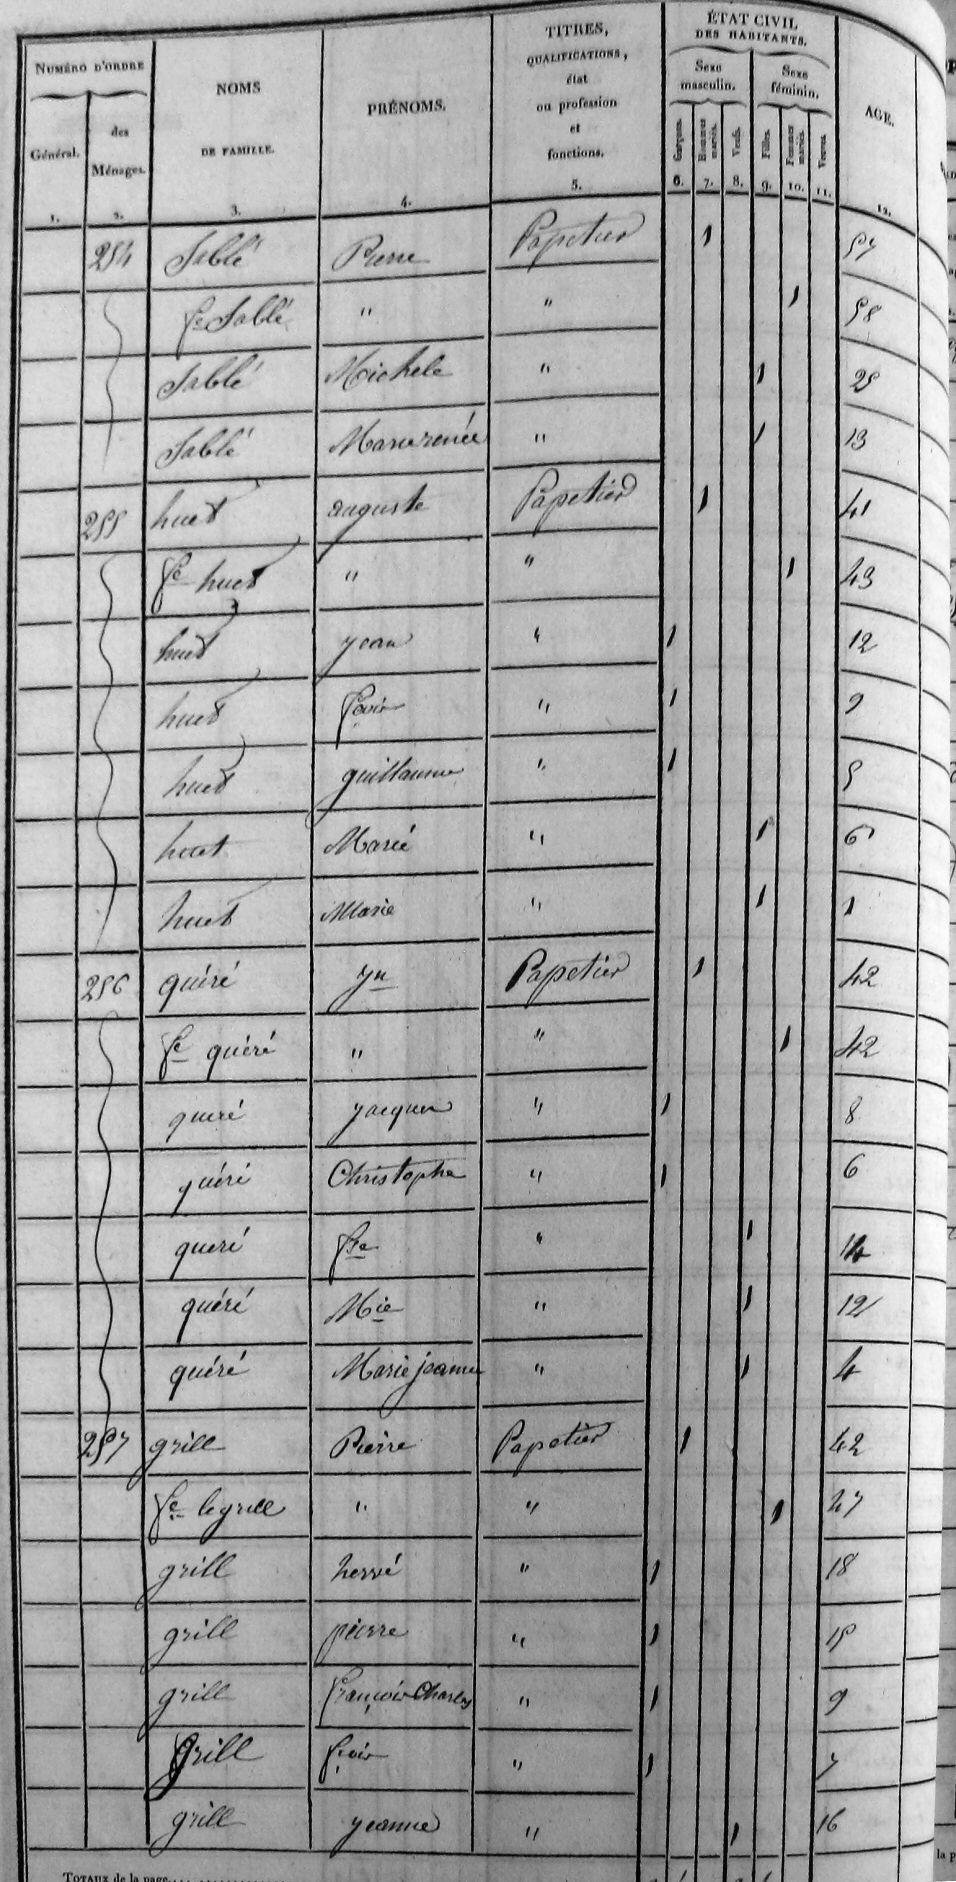 NUMÉRO D'ORDRE
Général.
des Ménages.
NOMS DE FAMILLE.
PRÉNOMS.
TITRES, QUALIFICATIONS, état ou profession et fonctions.
ÉTAT CIVIL DES HABITANTS.
Sexe masculin.
Sexe féminin.
Garçons.
Hommes mariés.
Veufs.
Filles.
Femmes mariées.
Veuves.
AGE.
1. 2. 3. 4. 5. 6. 7. 8. 9. 10. 11. 12.
254 Sablé Pierre Papetier 1 57
fe Sablé " " 1 58
Sablé Michele " 1 25
Sablé Marie renée " 1 13
255 huet auguste Papetier 1 41
fe huet " " 1 43
huet jean " 1 12
huet " 1 9
huet guillaume " 1 5
huet Marie " 1 6
huet Marie " 1 1
256 quéré Jn Papetier 1 42
fe quéré " " 1 42
queré jacques " 1 8
quéré Christophe " 1 6
queré " 1 14
quéré Mie " 1 12
quéré Marie jeanne " 1 4
257 grill Pierre Papetier 1 42
fe le grill " " 1 47
grill hervé " 1 18
grill pierre " 1 15
grill françois Charles " 1 9
grill " 1 7
grill jeanne " 1 16
TOTAUX de la page